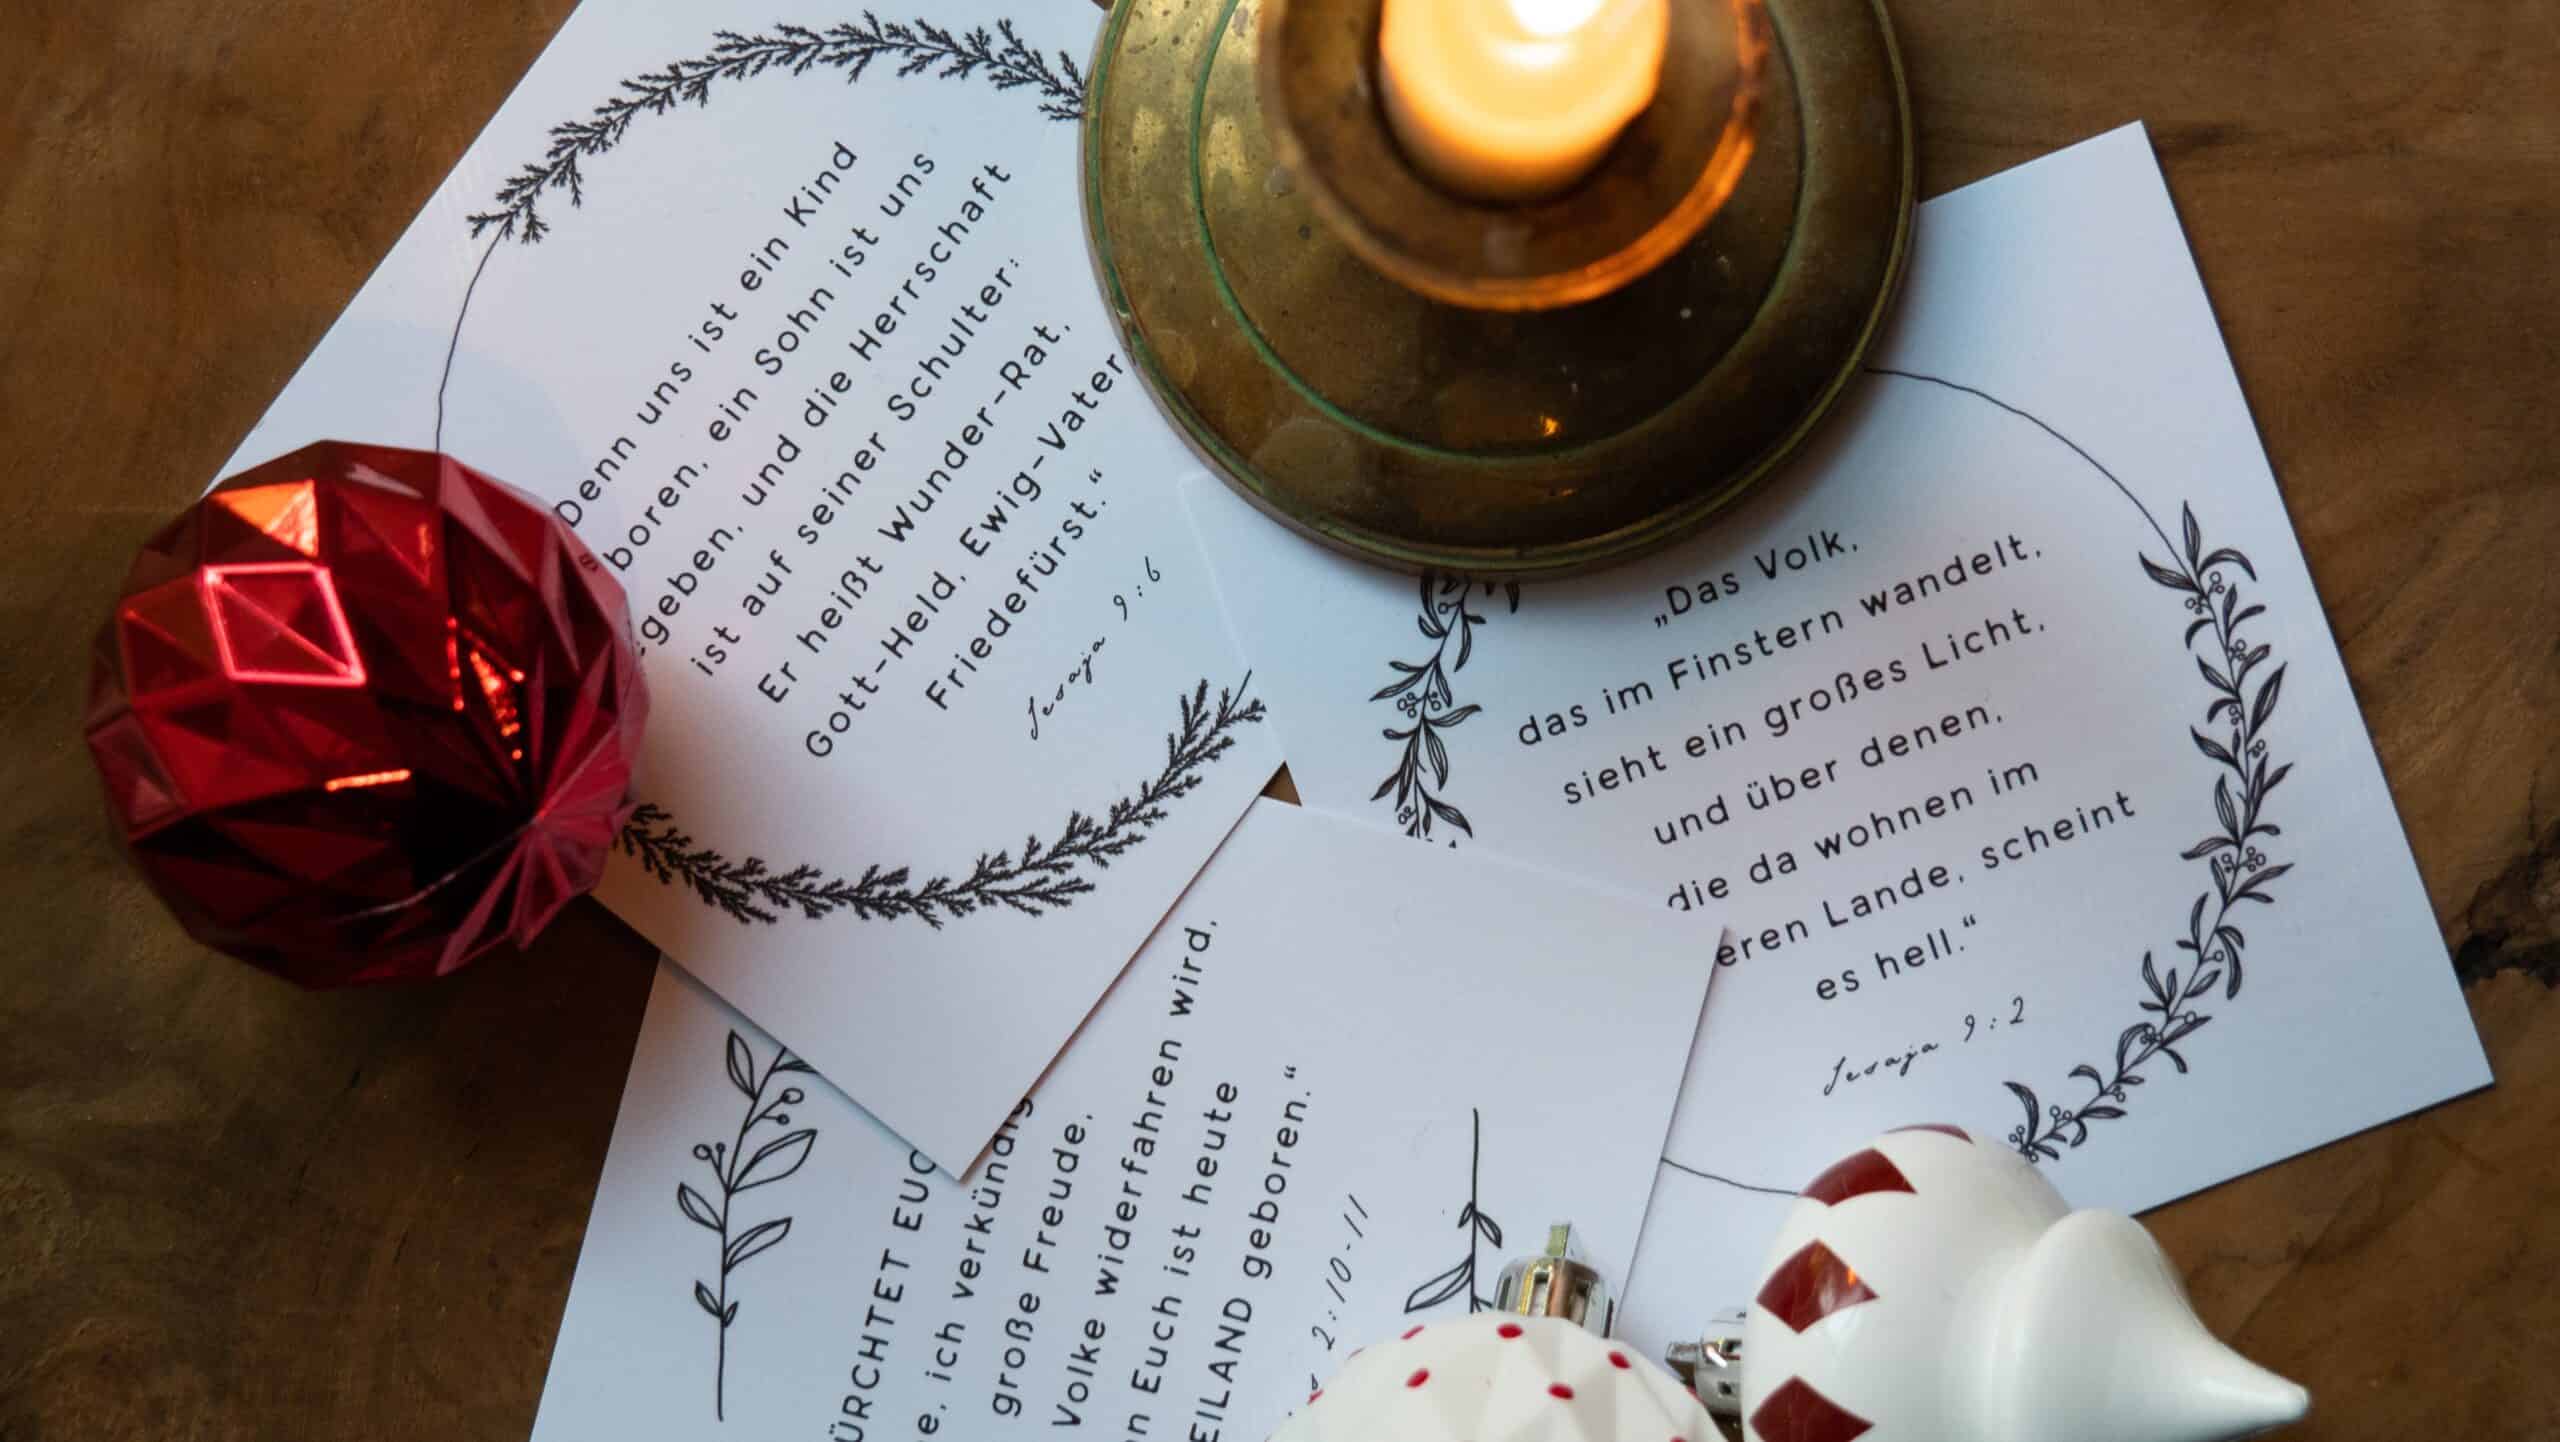 Denn uns ist ein Kind
boren, ein Sohn ist uns
geben, und die Herrschaft
ist auf seiner Schulter;
Er heißt Wunder-Rat,
Gott-Held, Ewig-Vater
Friedefürst.“
Jesaja 9:6
„Das Volk,
das im Finstern wandelt,
sieht ein großes Licht,
und über denen,
die da wohnen im
eren Lande, scheint
es hell.“
Jesaja 9:2
ÜRCHTET EUC
e, ich verkündig
große Freude,
Volke widerfahren wird,
n Euch ist heute
EILAND geboren.“
2:10-11